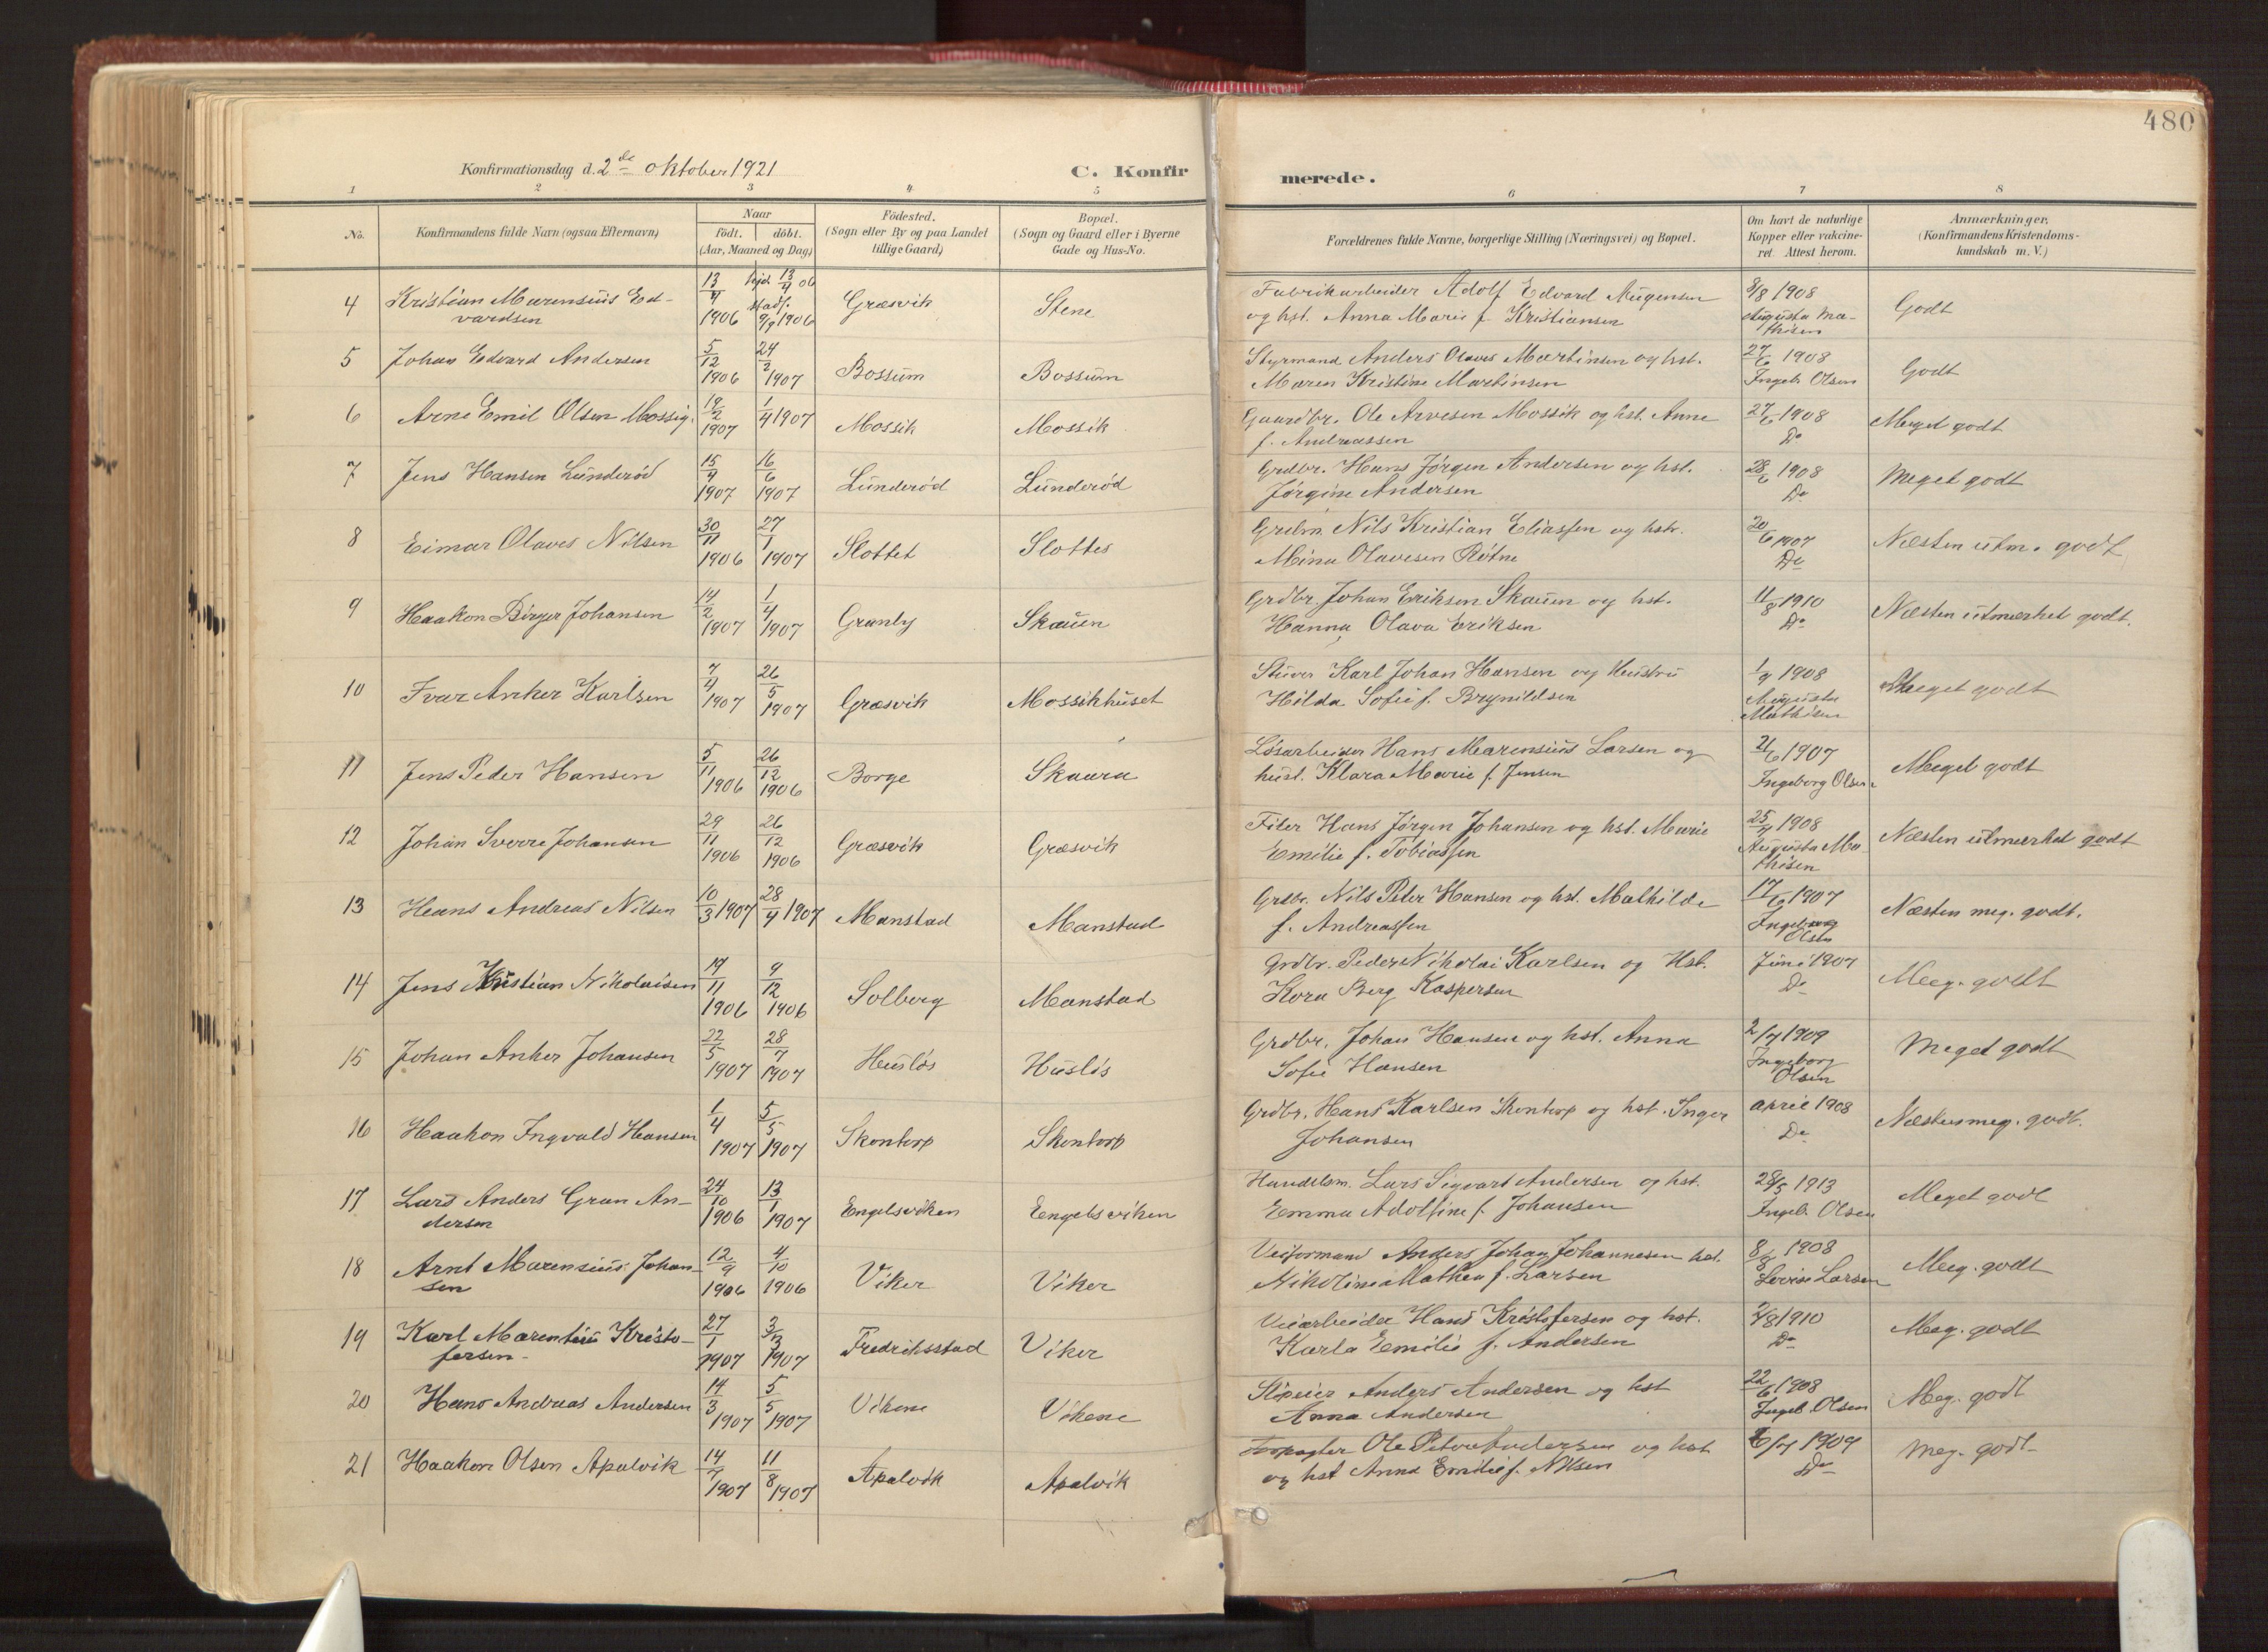 480
Konfirmationsdag d. 2de oktober 1921
C. Konfirmerede.
1 2 3 4 5 6 7 8
No.
Konfirmandens fulde Navn (ogsaa Efternavn)
Naar
födt. döbt.
(Aar, Maaned og Dag)
Födested.
(Sogn eller By og paa Landet
tillige Gaard)
Bopæl.
(Sogn og Gaard eller i Byerne
Gade og Hus-No.
Forældrenes fulde Navne, borgerlige Stilling (Næringsvei) og Bopæl.
Om havt de naturlige
Kopper eller vakcine-
ret. Attest herom.
Anmærkninger.
(Konfirmandens Kristendoms-
kundskab m. V.)
4 Kristian Marensius Ed-
vardsen
13/4 1906 hjd 13/4 06 stadf. 9/9 1906 Græsvik Stene
Fabrikarbeider Adolf Edvard
og hst. Anna Marie f. Kristiansen
8/8 1908
Augusta Ma-
thisen
Godt
5 Johan Edvard Andersen 5/12 1906 24/2 1907 Bossum Bossum
Styrmand Anders Olaves Martinsen og hst.
Maren Kristine Martinsen
27/6 1908
Ingeb. Olsen
Godt
6 Arne Emil Olsen Mossig. 19/2 1907 1/4 1907 Mossik Mossik
Gaardbr. Ole Arvesen Mossik og hst. Anne
f. Andreassen
27/6 1908
Do
Meget godt
7 Jens Hansen Lunderød 15/4 1907 16/6 1907 Lunderød Lunderød
Grdbr. Hans Jørgen Andersen og hst.
Jørgine Andersen
28/6 1908
Do
Meget godt
8 Eimar Olaves Nilsen 30/11 1906 27/1 1907 Slottet Slottes
Nils Kristian Eliassen og hstr.
Mina Olavesen Røtne
20/6 1907
Do
Næsten utm. godt
9 Haakon Birger Johansen 14/2 1907 1/4 1907 Granly Skauen
Grdbr. Johan Eriksen Skauen og hst.
Hanna Olava Eriksen
11/8 1910
Do
Næsten utmerket godt.
10 Ivar Anker Karlsen 7/4 1907 26/5 1907 Græsvik Mossikhuset
Stuer Karl Johan Hansen og Hustru
Hilda Sofie f. Brynildsen
1/9 1908
Augusta
Mathisen
Meget godt
11 Jens Peder Hansen 5/11 1906 26/12 1906 Borge Skaara
Løsarbeider Hans Marensius Larsen og
hust. Klara Marie f. Jensen
21/6 1907
Ingeborg Olsen
Meget godt
12 Johan Sverre Johansen 29/11 1906 26/12 1906 Græsvik Græsvik
Filer Hans Jørgen Johansen og hst. Marie
Emilie f. Tobiassen
25/7 1908
Augusta Ma
thisen
Næsten utmerket godt
13 Hans Andreas Nilsen 10/3 1907 28/4 1907 Manstad Manstad
Grdbr. Nils Peter Hansen og hst. Mathilde
f. Andreassen
17/6 1907
Ingeborg
Olsen
Næsten meg. godt.
14 Jens Kristian Nikolaisen 19/11 1906 9/12 1906 Solberg Manstad
Grdbr. Peder Nikolai Karlsen og Hst.
Kora Berg Kaspersen
Juni 1907
Do
Meg. godt
15 Johan Anker Johansen 22/5 1907 28/7 1907 Husløs Husløs
Grdbr. Johan Hansen og hst. Anna
Sofie Hansen
2/7 1909
Ingeborg
Olsen
Meget godt
16 Haakon Ingvald Hansen 1/4 1907 5/5 1907 Skontorp Skontorp
Grdbr. Hans Karlsen Skontorp og hst. Inger
Johansen
april 1908
Do
Næsten meg. godt.
17 Lars Anders Gran An-
dersen
24/10 1906 13/1 1907 Engelsviken Engelsviken
Handelsm. Lars Sigvart Andersen og hst.
Emma Adolfine f. Johansen
28/5 1913
Ingeb. Olsen
Meget godt
18 Arnt Marensius Johan-
sen
12/9 1906 4/10 1906 Viker Viker
Veiformand Anders Johan Johannesen hst.
Nikoline Mathea f. Larsen
8/8 1908
Lovise Larsen
Meg. godt
19 Karl Marentius Kristo-
fersen
27/1 1907 3/3 1907 Fredrikstad Viker
Veiarbeider Hans Kristofersen og hst.
Karla Emilie f. Andersen
2/8 1910
Do
Meg. godt
20 Hans Andreas Andersen 14/3 1907 5/5 1907 Vikene Vikene
Anders Andersen og hst
Anna Andersen
22/6 1908
Ingeb. Olsen
Meg. godt
21 Haakon Olsen Apalvik 14/7 1907 11/8 1907 Apalvik Apalvik
Ole Petter Andersen og hst
og hst Anna Emilie f. Nilsen
6/7 1909
Do
Meg. godt